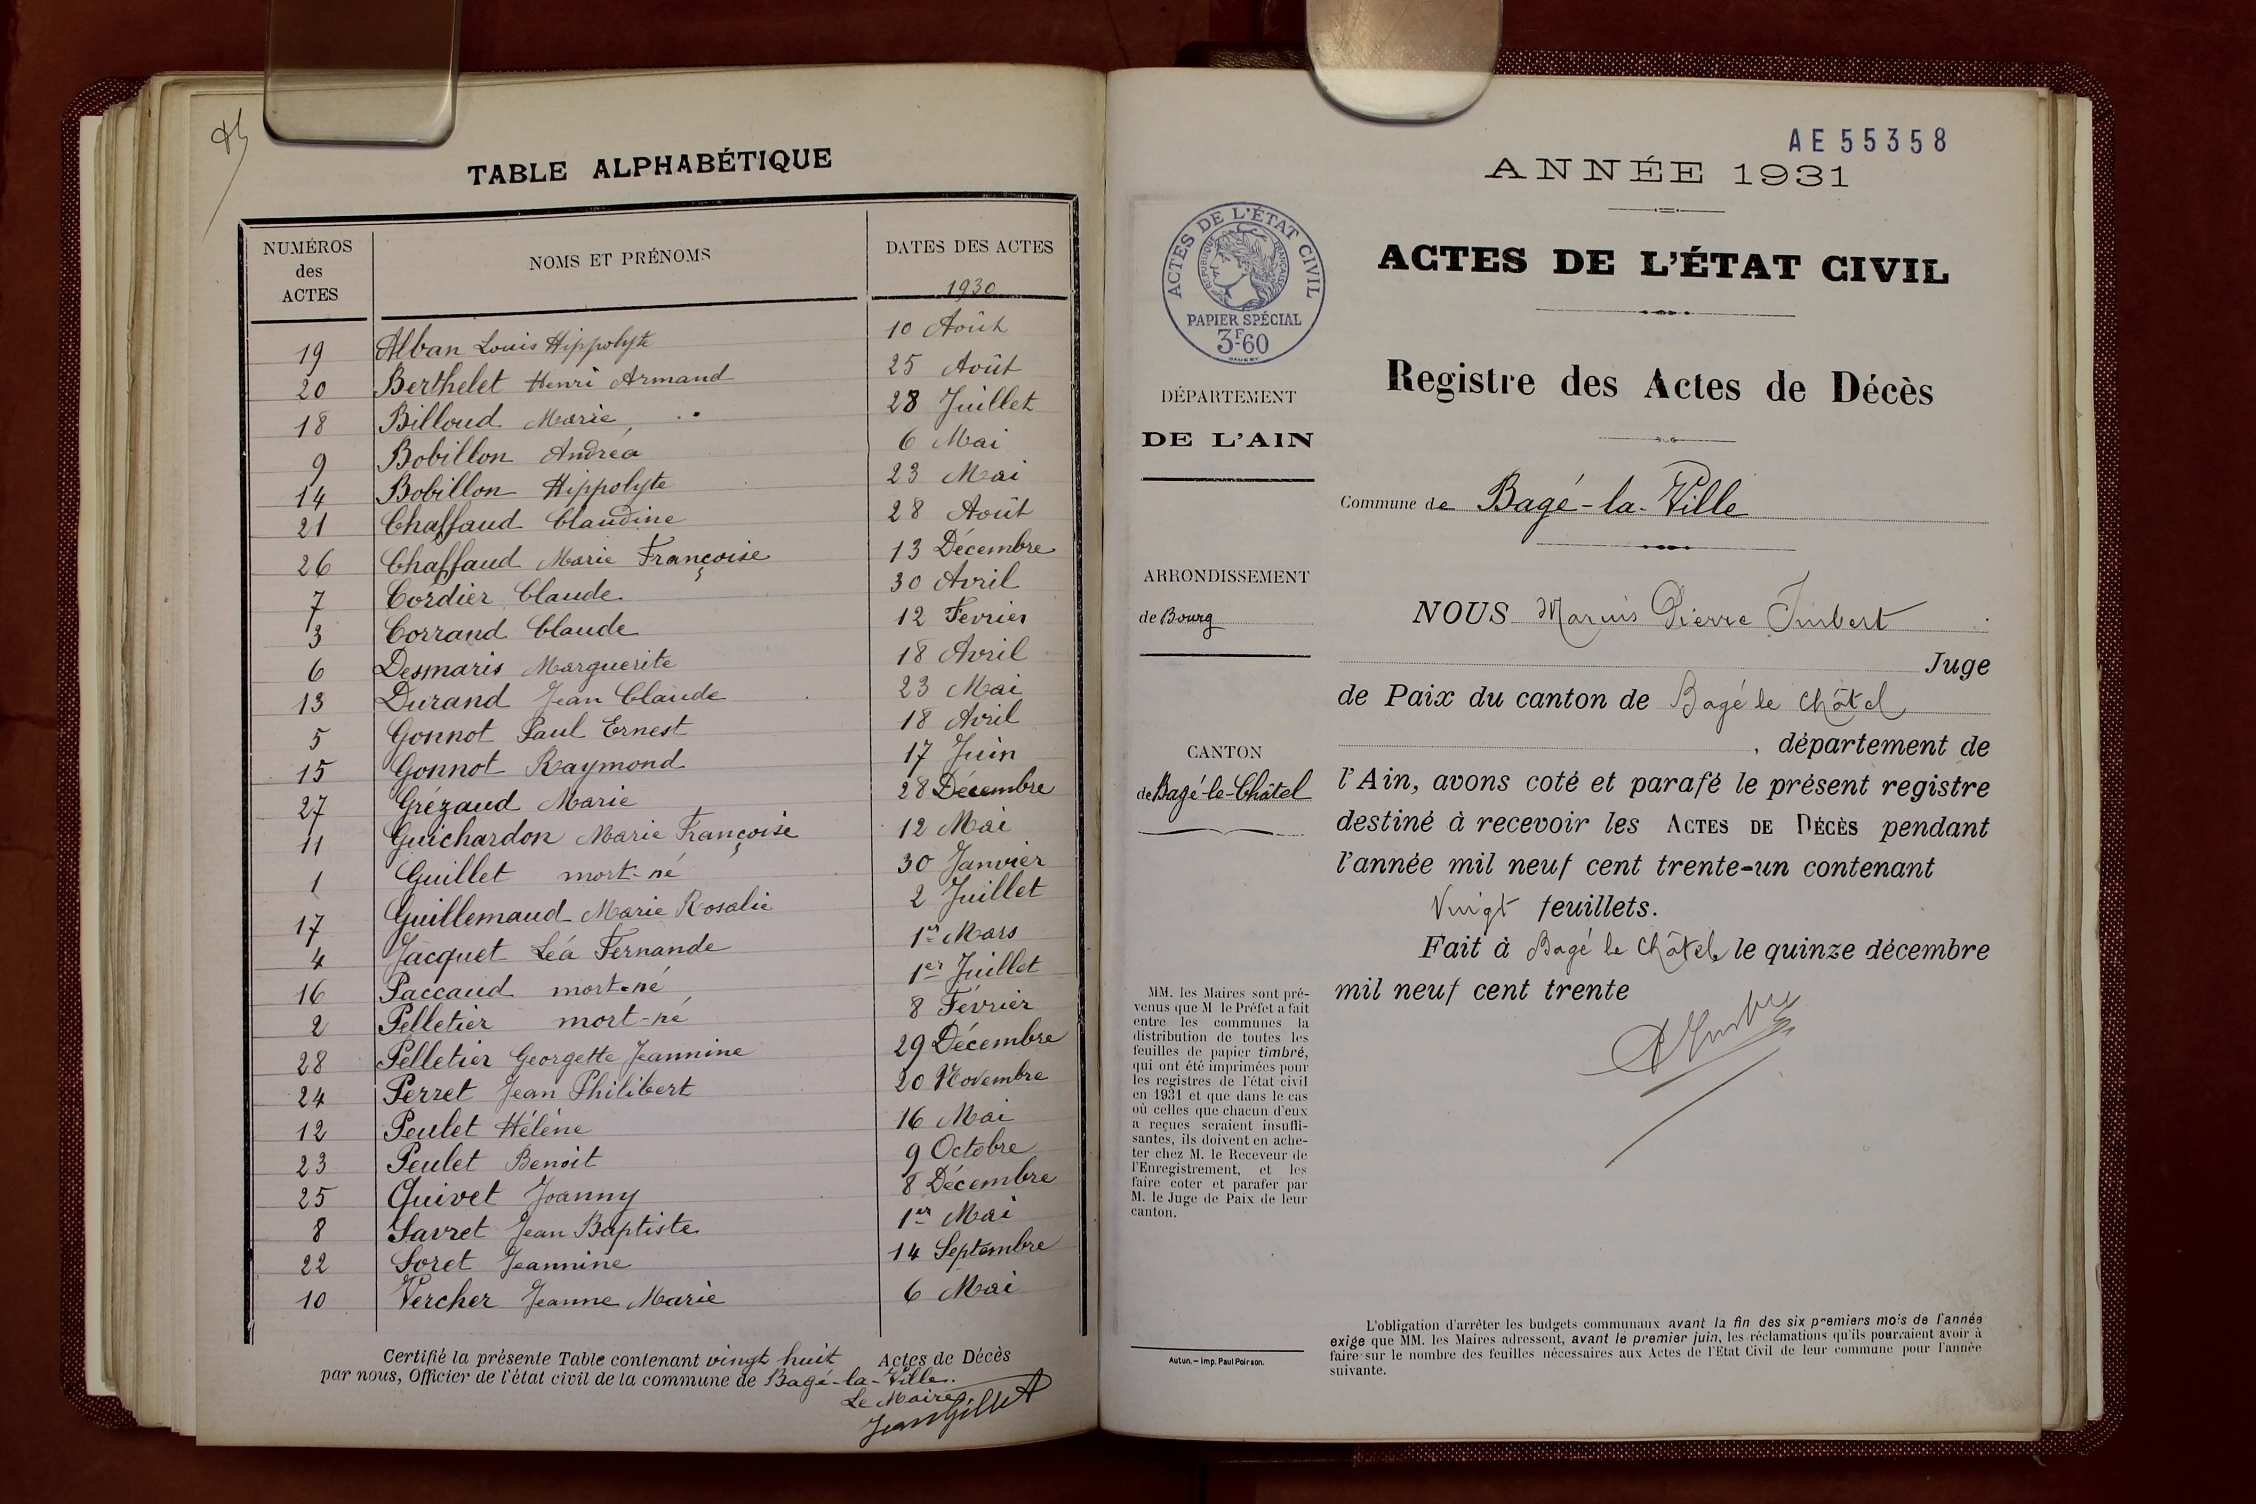 TABLE ALPHABÉTIQUE
NUMÉROS des ACTES NOMS ET PRÉNOMS DATES DES ACTES
1930
19 Alban Louis Hippolyte 10 Août
20 Berthelet Henri Armand 25 Août
18 Billoud Marie 28 Juillet
9 Bobillon Andréa 6 Mai
14 Bobillon Hippolyte 23 Mai
21 Chaffaud Claudine 28 Août
26 Chaffaud Marie Françoise 13 Décembre
7 Cordier Claude 30 Avril
3 Corrand Claude 12 Fevrier
6 Desmaris Marguerite 18 Avril
13 Durand Jean Claude 23 Mai
5 Gonnot Paul Ernest 18 Avril
15 Gonnot Raymond 17 Juin
27 Grézaud Marie 28 Décembre
11 Guichardon Marie Françoise 12 Mai
1 Guillet mort-né 30 Janvier
17 Guillemaud Marie Rosalie 2 Juillet
4 Jacquet Léa Fernande 1er Mars
16 Paccaud mort-né 1er Juillet
2 Pelletier mort-né 8 Février
28 Pelletier Georgette Jeannine 29 Décembre
24 Perret Jean Philibert 20 Novembre
12 Peulet Hélène 16 Mai
23 Peulet Benoit 9 Octobre
25 Quivet Joanny 8 Décembre
8 Savret Jean Baptiste 1er Mai
22 Soret Jeannine 14 Septembre
10 Vercher Jeanne Marie 6 Mai
Certifié la présente Table contenant vingt huit Actes de Décès
par nous, Officier de l'état civil de la commune de Bagé-la-Ville.
Le Maire
Jean Gillet
AE 55358
ANNÉE 1931
ACTES DE L'ÉTAT CIVIL
RÉPUBLIQUE FRANÇAISE
PAPIER SPÉCIAL
3F60
ACTES DE L'ÉTAT CIVIL
Registre des Actes de Décès
DÉPARTEMENT
DE L'AIN
Commune de Bagé-la-Ville
ARRONDISSEMENT
de Bourg
CANTON
de Bagé-le-Châtel
NOUS Marius Pierre Imbert
Juge
de Paix du canton de Bagé le Châtel
, département de
l'Ain, avons coté et parafé le présent registre
destiné à recevoir les ACTES DE DÉCÈS pendant
l'année mil neuf cent trente-un contenant
Vingt feuillets.
Fait à Bagé le Châtel, le quinze décembre
mil neuf cent trente
MM. les Maires sont pré-
venus que M le Préfet a fait
entre les communes la
distribution de toutes les
feuilles de papier timbré,
qui ont été imprimées pour
les registres de l'état civil
en 1931 et que dans le cas
où celles que chacun d'eux
a reçues seraient insuffi-
santes, ils doivent en ache-
ter chez M. le Receveur de
l'Enregistrement, et les
faire coter et parafer par
M. le Juge de Paix de leur
canton.
Autun. — Imp. Paul Poirson.
L'obligation d'arrêter les budgets communaux avant la fin des six premiers mois de l'année
exige que MM. les Maires adressent, avant le premier juin, les réclamations qu'ils pourraient avoir à
faire sur le nombre des feuilles nécessaires aux Actes de l'Etat Civil de leur commune pour l'année
suivante.